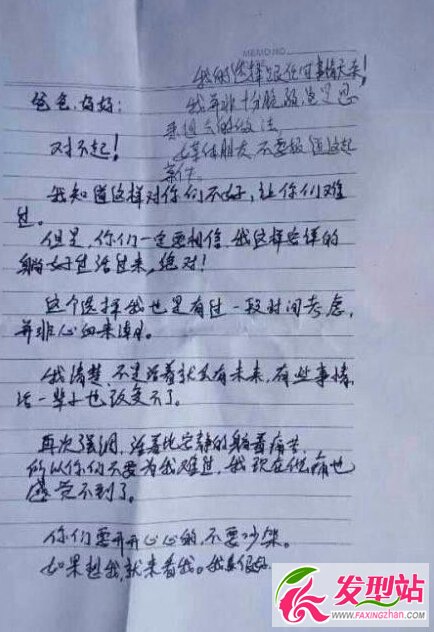 MEMO NO.
我的选择跟任何事情无关!
我并非十分脆弱,
的做法
不要报道这起
事件。
爸爸,妈妈:
对不起!
我知道这样对你们不好,让你们难
过。
但是,你们一定要相信,我这样安详的
躺好过活过来,绝对!
这个选择我也是有过一段时间考虑,
并非心血来潮。
我清楚,不是活着就会有未来,有些事情,
活一辈子也改变不了。
再次强调,活着比安静的躺着痛苦,
所以你们不要为我难过,我现在一点痛也
感觉不到了。
你们要开开心心的,不要吵架。
如果想我,就来看我。我真很好。
发型站
WWW.FAXINGZHAN.COM